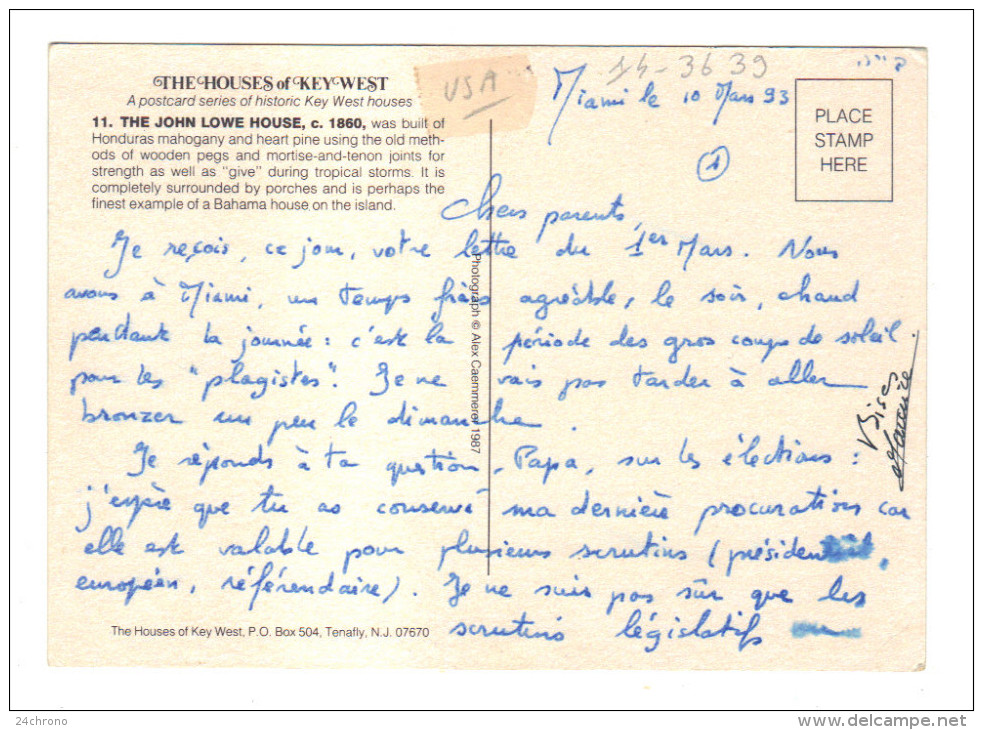 THE HOUSES of KEY WEST
A postcard series of historic Key West houses
11. THE JOHN LOWE HOUSE, c. 1860, was built of
Honduras mahogany and heart pine using the old meth-
ods of wooden pegs and mortise-and-tenon joints for
strength as well as "give" during tropical storms. It is
completely surrounded by porches and is perhaps the
finest example of a Bahama house on the island.
USA
14-3639
Miami le 10 Mars 93
PLACE
STAMP
HERE
1
Chers parents,
Je reçois, ce jour, votre lettre du 1er Mars. Nous
avons à Miami, un temps frais agréable, le soir, chaud
pendant la journée : c'est la période des gros coups de soleil
pour les "plagistes". Je ne vais pas tarder à aller
bronzer un peu le dimanche.
Je réponds à ta question, Papa, sur les élections :
j'espère que tu as conservé ma dernière procuration car
elle est valable pour plusieurs scrutins (présidentiel,
européen, référendaire). Je ne suis pas sûr que les
scrutins législatifs
Bises
Photograph © Alex Caemmerer 1987
The Houses of Key West, P.O. Box 504, Tenafly, N.J. 07670
24chrono
www.delcampe.net